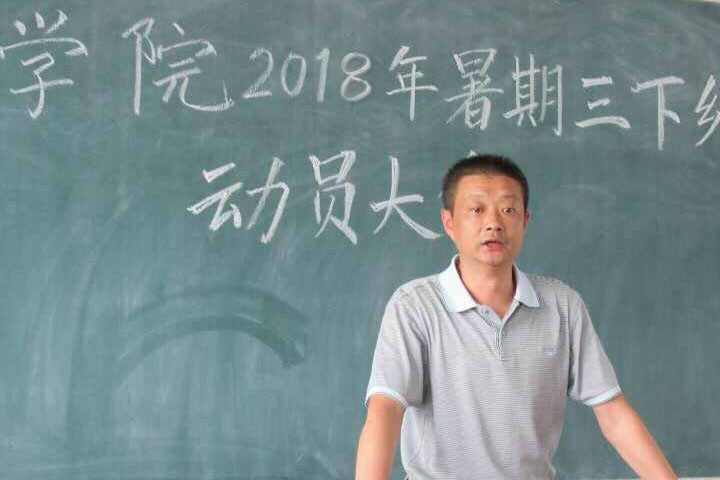 学院2018年暑期三下乡
动员大